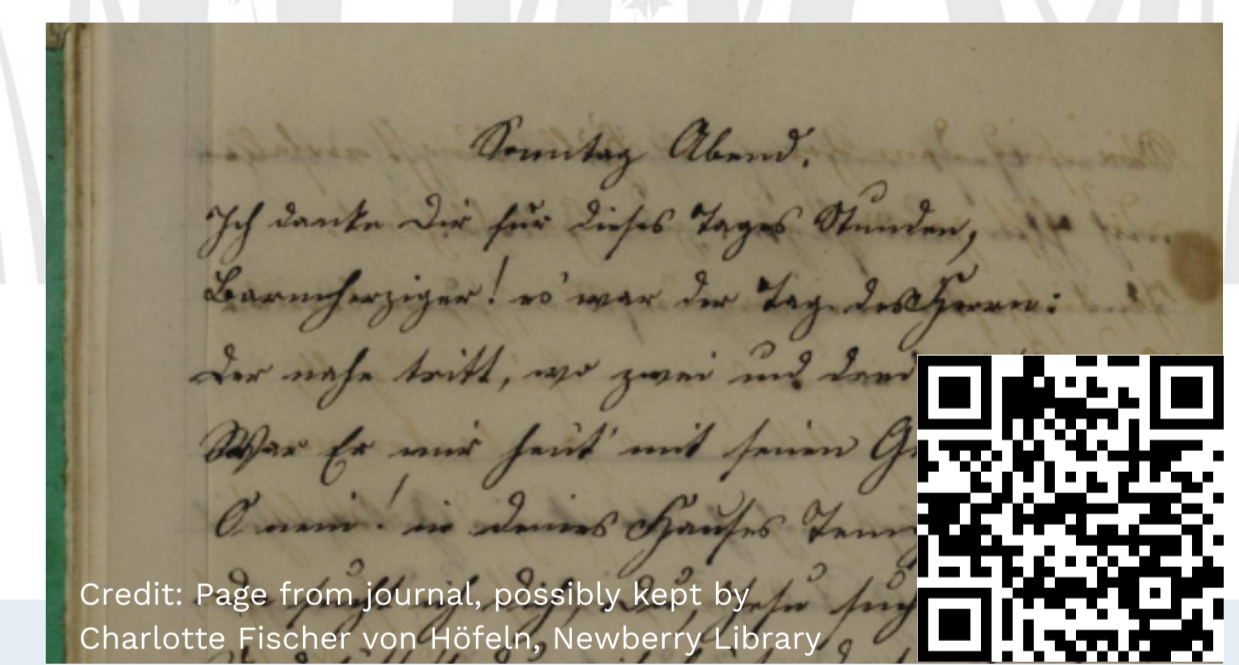 Sonntag Abend.
Ich danke Dir für dieses Tages Stunden,
Barmherziger! es war der Tag des Herrn:
Der nahe tritt, wo zwei und drei
War Er mir heut' mit seinen
O nein! in deines Hauses
Credit: Page from journal, possibly kept by
Charlotte Fischer von Höfeln, Newberry Library